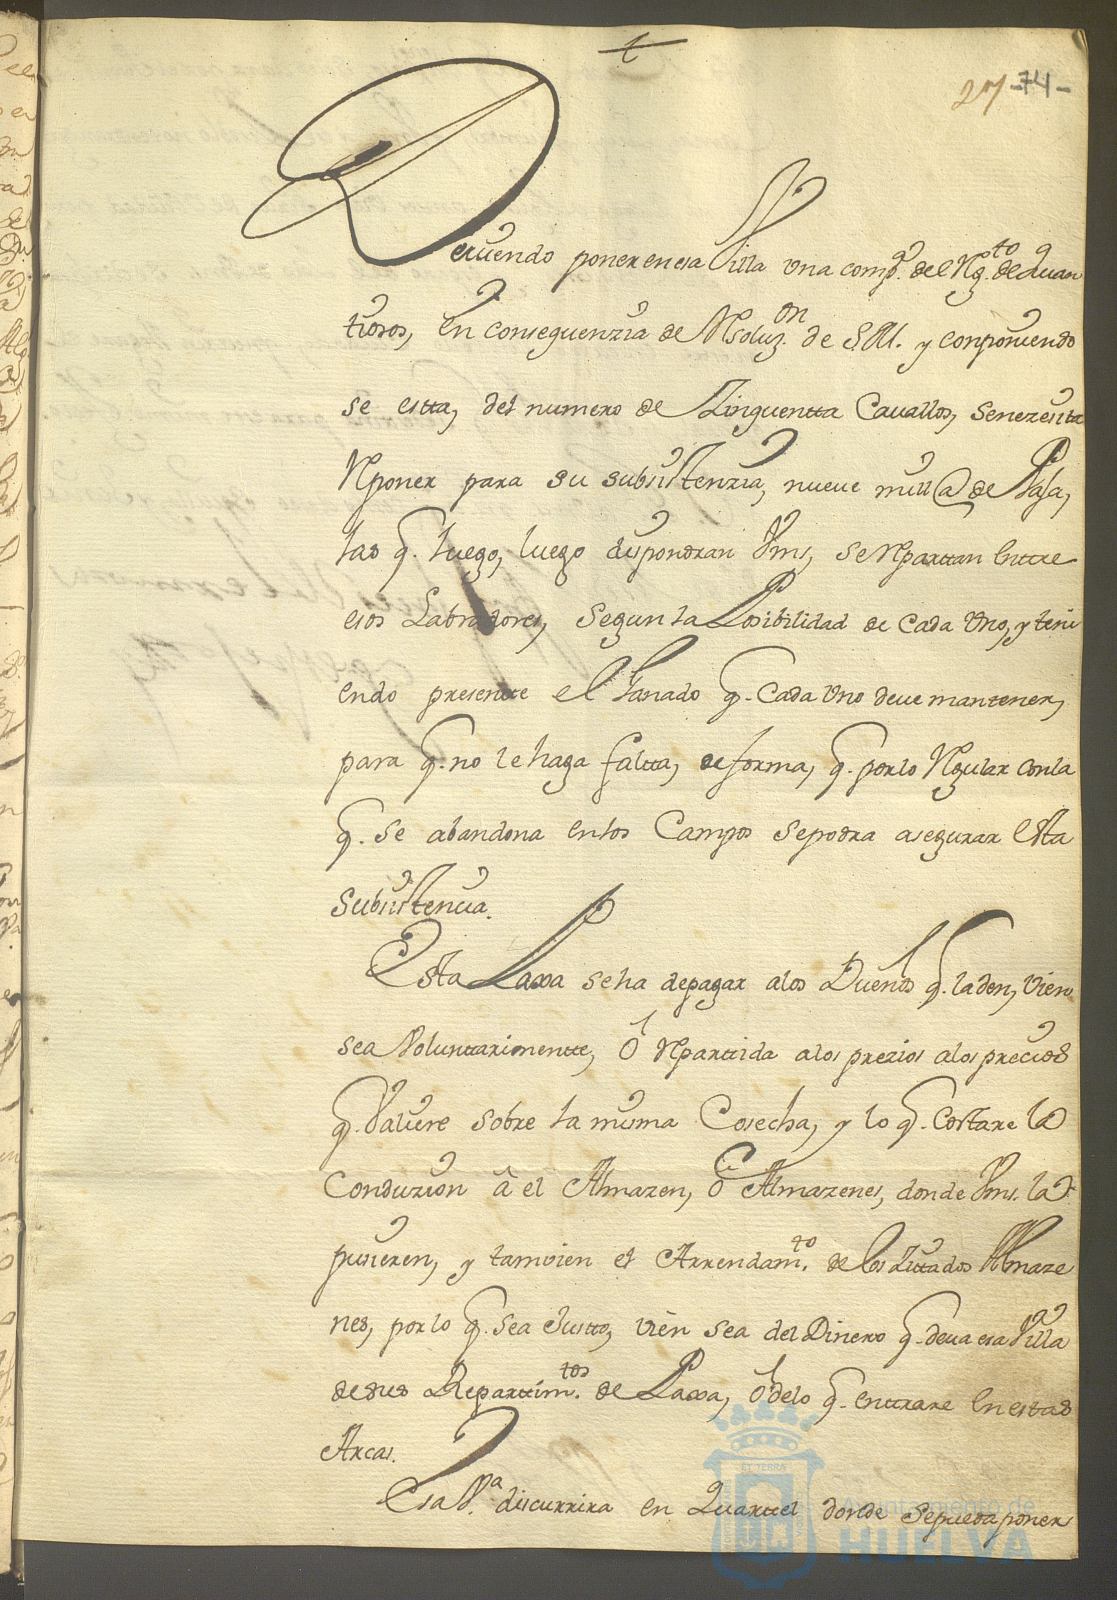 t
27 -74-
Deviendo poner en esa Villa una compª. del Rg.to de quan
tiosos, en consequenzia de Rsoluz.on de S.M. y conponiendo
se estta, del numero de Zinquentta Cavallos, se nezesita
Rponer para su subsistenzia, nueve mill @ de Paja,
las q. luego, luego dispondran Vms, se Rpartan entre
esos Labradores, segun la Posibilidad de cada uno, y teni
endo presentte el Ganado q. cada uno deve mantener,
para q. no le haga faltta, de forma, q. por lo Rgular con la
q. se abandona en los Campos se podra asegurar esta
subsistencia.
Esta Paxa se ha de pagar a los Dueños q. la den, vien
sea Voluntariamentte, ó Rpartida a los prezios a los precios
q. Valiere sobre la misma Cosecha, y lo q. costare la
Conduzion â el Almazen, ó Almazenes, donde Vms. la
pusieren, y tamvien el Arrendam.to de los Zittados Almaze
nes, por lo q. sea Justto, vien sea del Dinero q. deva esa Villa
de sus Reparttim.tos de Paxa, ó de lo q. enttrare en estas
Arcas.
Esa V.ª discurrira en Quarttel donde se pueda poner
ET TERRÆ
Ayuntamiento de
HUELVA